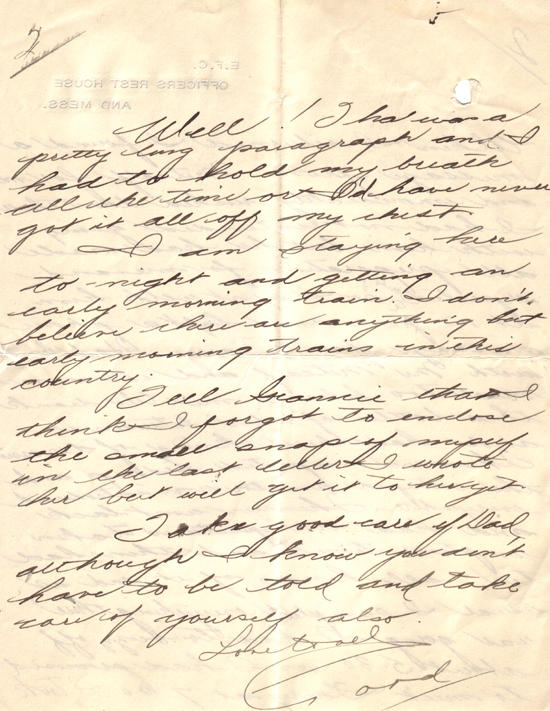 2
E.F.C.
OFFICERS REST HOUSE
AND MESS.
Well! That was a
pretty long paragraph and I
had to hold my breath
all the time or I'd have never
got it all off my chest.
I am staying here
to-night and getting an
early morning train. I don't
believe there are anything but
early morning trains in this
country.
Tell Grannie that I
think I forgot to enclose
the small snap of myself
in the last letter I wrote
her but will get it to her yet.
Take good care of Dad,
although I know you don't
have to be told and take
care of yourself also.
Love to all